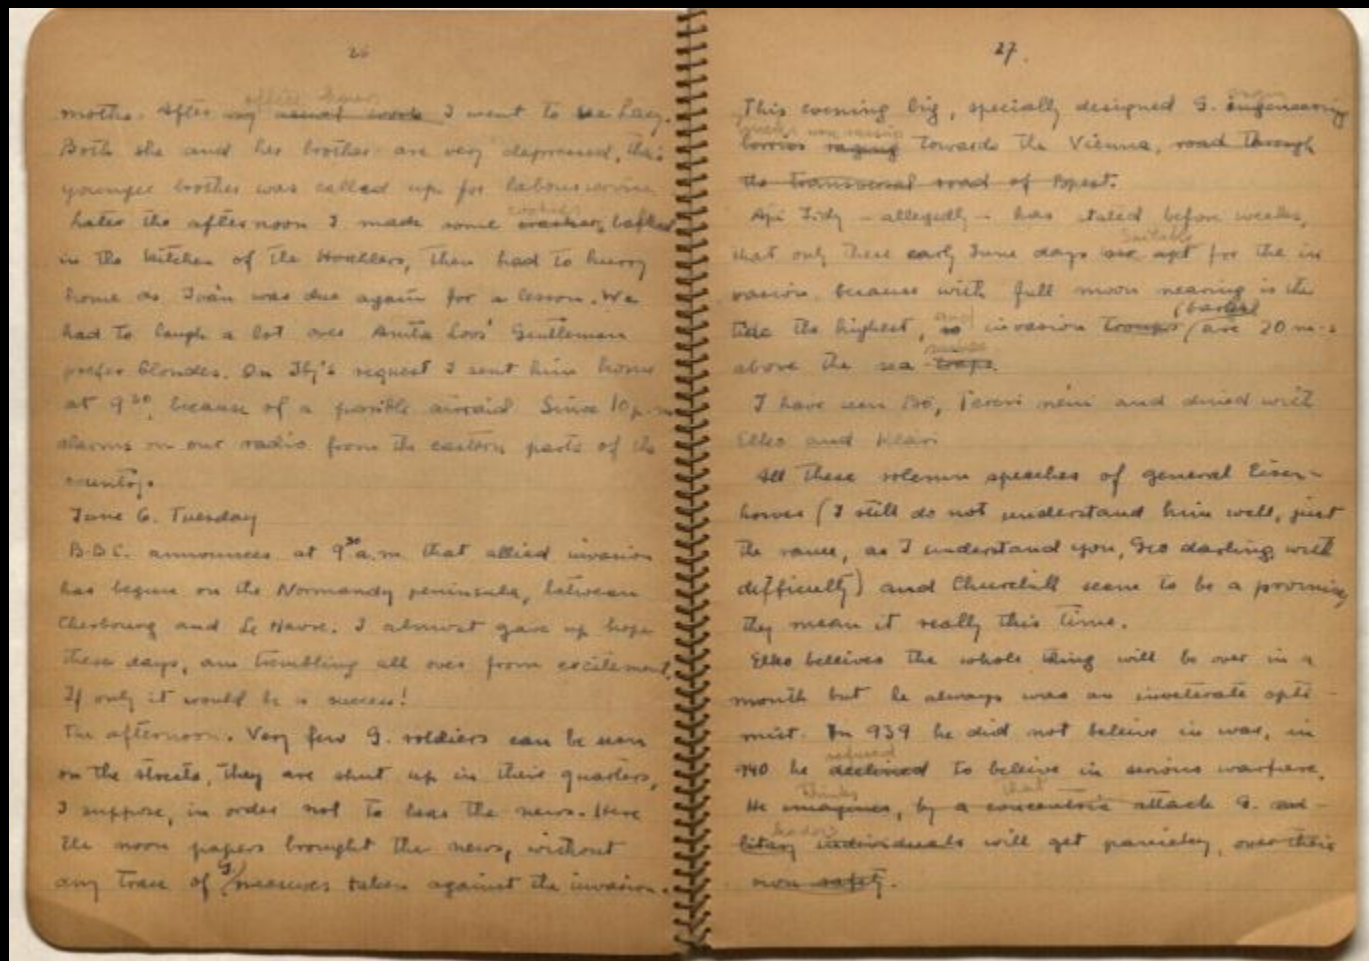 26
office hours
moths. After my usual work I went to see Lacy.
Both she and her brother are very depressed, the
younger brother was called up for labourservice
cookies
Later the afternoon I made some crackers, baked
in the kitchen of the, then had to hurry
home as Iván was due again for a lesson. We
had to laugh a lot over Anita Loos' Gentlemen
prefer Blondes. On request I sent him home
at 9³⁰, because of a possible airraid. Since 10 p.m
alarms on our radio from the eastern parts of the
country.
June 6. Tuesday
B.B.C. announces at 9³⁰ a.m. that allied invasion
has begun on the Normandy peninsula, between
Cherbourg and Le Havre. I almost gave up hope
these days, am trembling all over from excitement.
If only it would be a success!
The afternoon. Very few G. soldiers can be seen
on the streets, they are shut up in their quarters,
I suppose, in order not to hear the news. Here
the noon papers brought the news, without
any trace of G/measures taken against the invasion.
27.
This evening big, specially designed G. engineering
lorries raging towards the Vienna, road through
the transversal road of Bpest.
Api Tidy - allegedly - has stated before weeks,
suitable
that only these early June days are apt for the in
vasion, because with full moon nearing is the
and (barges)
tide the highest, so invasion troups (are 20 m-s
mines
above the sea traps.
I have seen Bö, Terczi néni and dined with
Elko and Klári
All these solemn speeches of general Eisen-
hower (I still do not understand him well, just
the same, as I understand you, Geo darling, with
difficulty) and Churchill seem to be a promise,
they mean it really this time.
Elko beleives the whole thing will be over in a
month but he always was an inveterate opti-
mist. In 939 he did not beleive in war, in
refused
940 he declined to beleive in serious warfare.
thinks that
He imagines, by a concentric attack G. mi-
leaders
litary individuals will get panicky, over their
own safety.